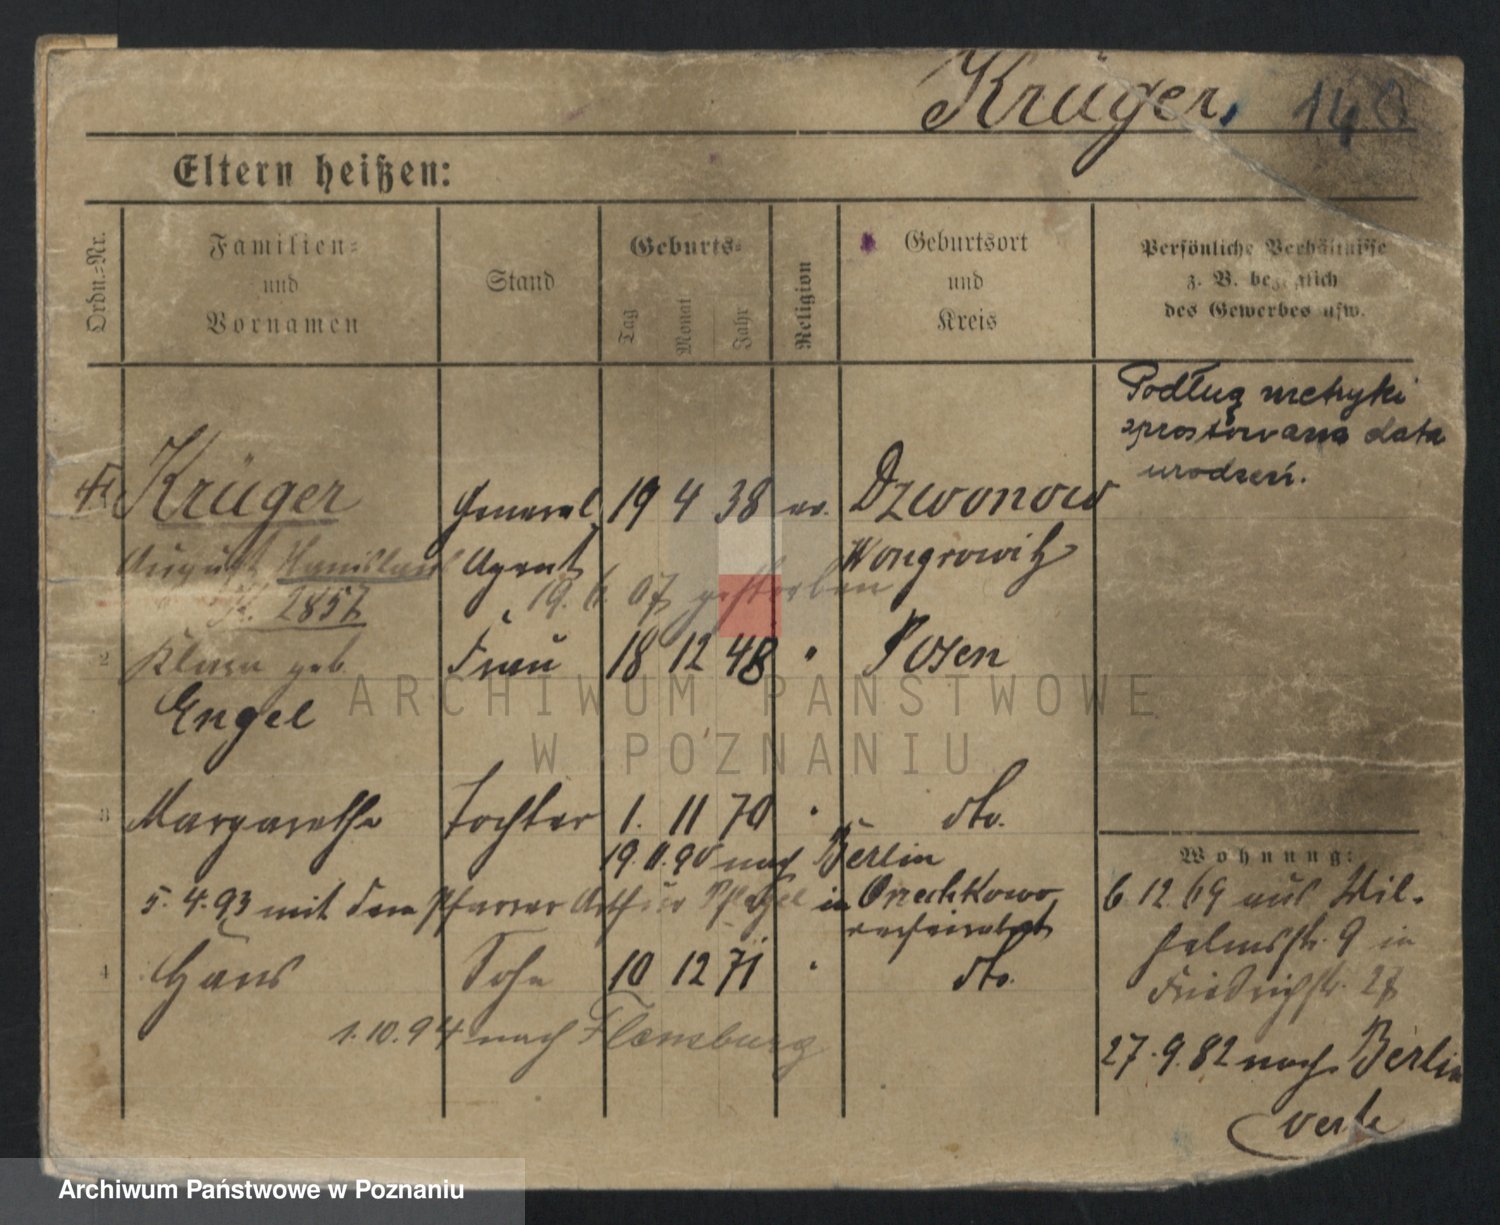 Krüger, 140
Eltern heißen:
Ordn.=Nr.
Familien=
und
Vornamen
Stand
Geburts=
Tag
Monat
Jahr
Religion
Geburtsort
und
Kreis
Persönliche Verhältnisse
z. B. bezüglich
des Gewerbes usw.
Podług metryki
sprostowana data
urodzeń.
Krüger General 19 4 38 ev. Dzwonowo
August Agent Wongrowitz
K. 2857 19. 6. 07 gestorben
2 Klara geb. Frau 18 12 48 " Posen
Engel
3 Margarethe Tochter 1. 11 70 " dto.
19. 11. 90 nach Berlin
5. 4. 93 mit dem Pfarrer Arthur in
verheirathet
4 Hans Sohn 10 12 71 " dto.
1. 10. 94 nach Flensburg
Wohnung:
6 12 69 aus Wil-
helmsstr. 9 in
Friedrichstr. 27
27. 9. 82 nach Berlin
verte
ARCHIWUM PAŃSTWOWE
W POZNANIU
Archiwum Państwowe w Poznaniu